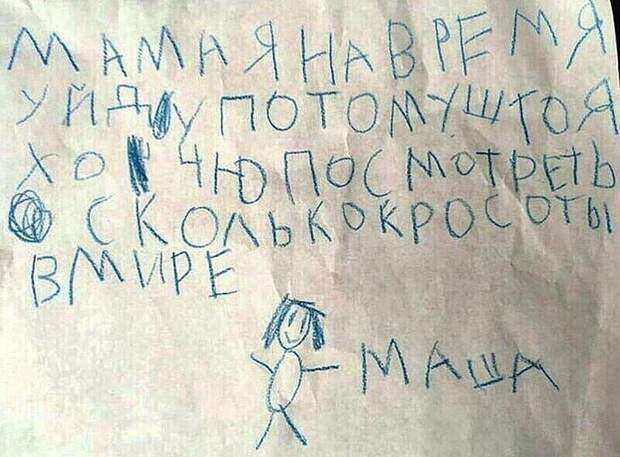 МАМА Я НА ВРЕМЯ
УЙДУ ПОТОМУ ШТО Я
ХОЧЮ ПОСМОТРЕТЬ
СКОЛЬКО КРОСОТЫ
В МИРЕ
МАША